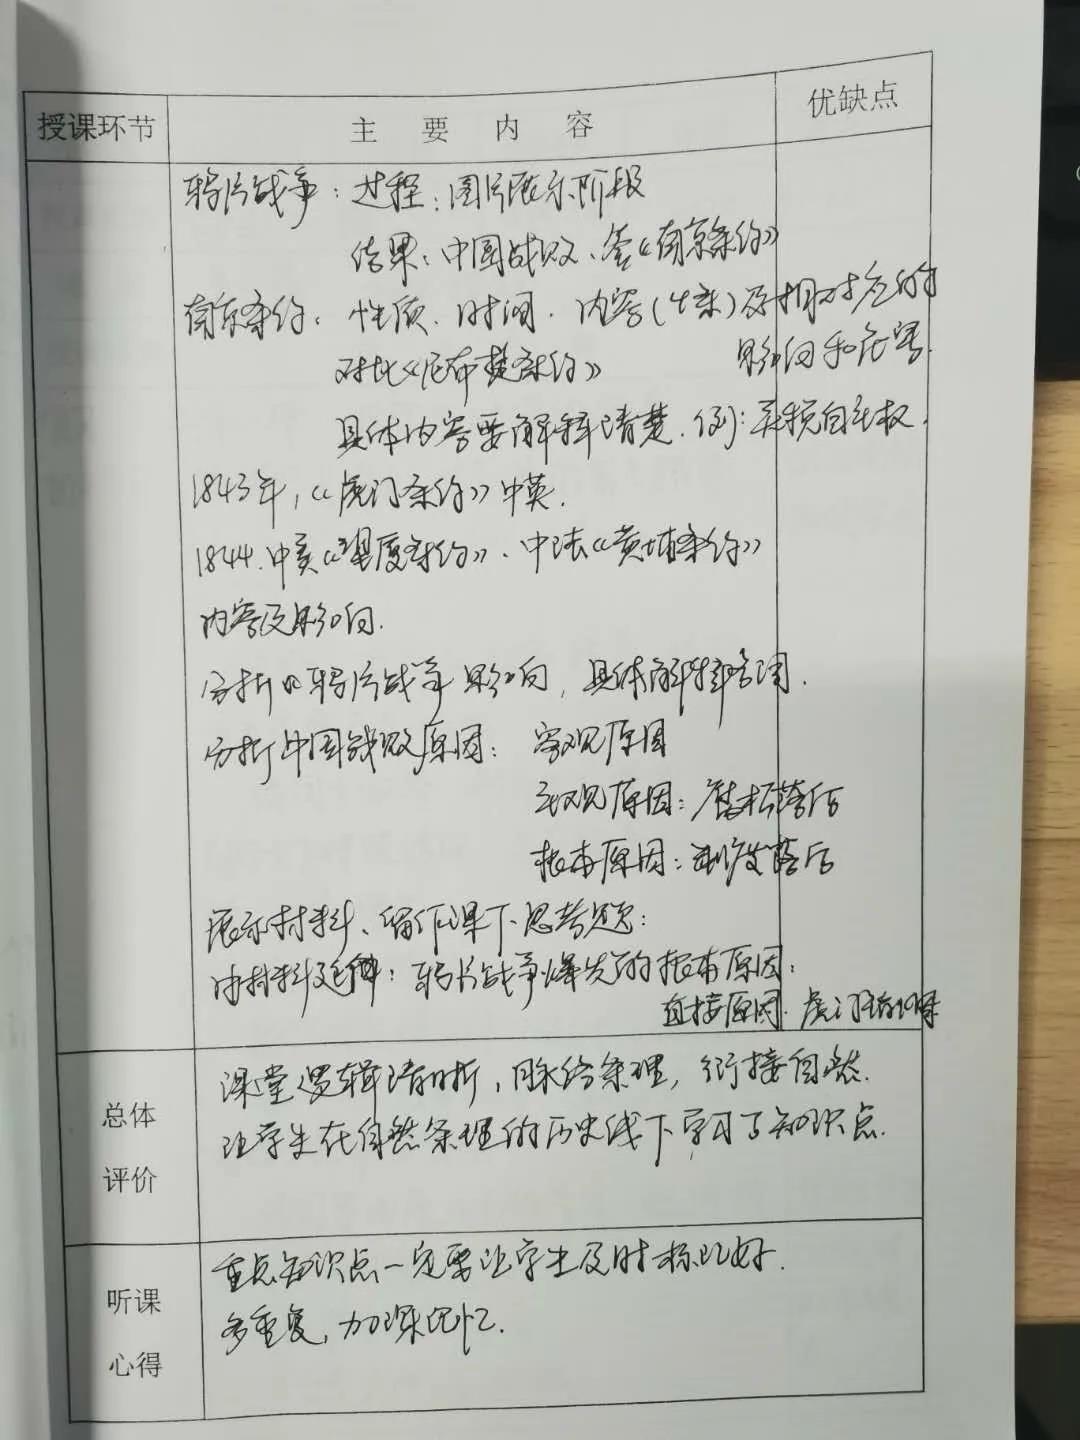 授课环节 主要内容 优缺点
鸦片战争：过程：图片展示阶段
结果：中国战败、签《南京条约》
南京条约：性质．时间．内容（4条）及相对应的
影响和危害．
对比《尼布楚条约》
具体内容要解释清楚．例：关税自主权．
1843年，《虎门条约》中英．
1844．中美《望厦条约》、中法《黄埔条约》
内容及影响．
分析《鸦片战争影响，具体解释
分析中国战败原因：客观原因
主观原因：落后
根本原因：制度落后
展示材料、留作课下思考题：
由材料延伸：鸦片战争爆发的根本原因：
直接原因．虎门销烟
总体评价
课堂逻辑清晰，脉络条理，衔接自然．
让学生在自然条理的历史线下学习了知识点．
听课心得
重点知识点一定要让学生及时标记好．
多重复，加深记忆．